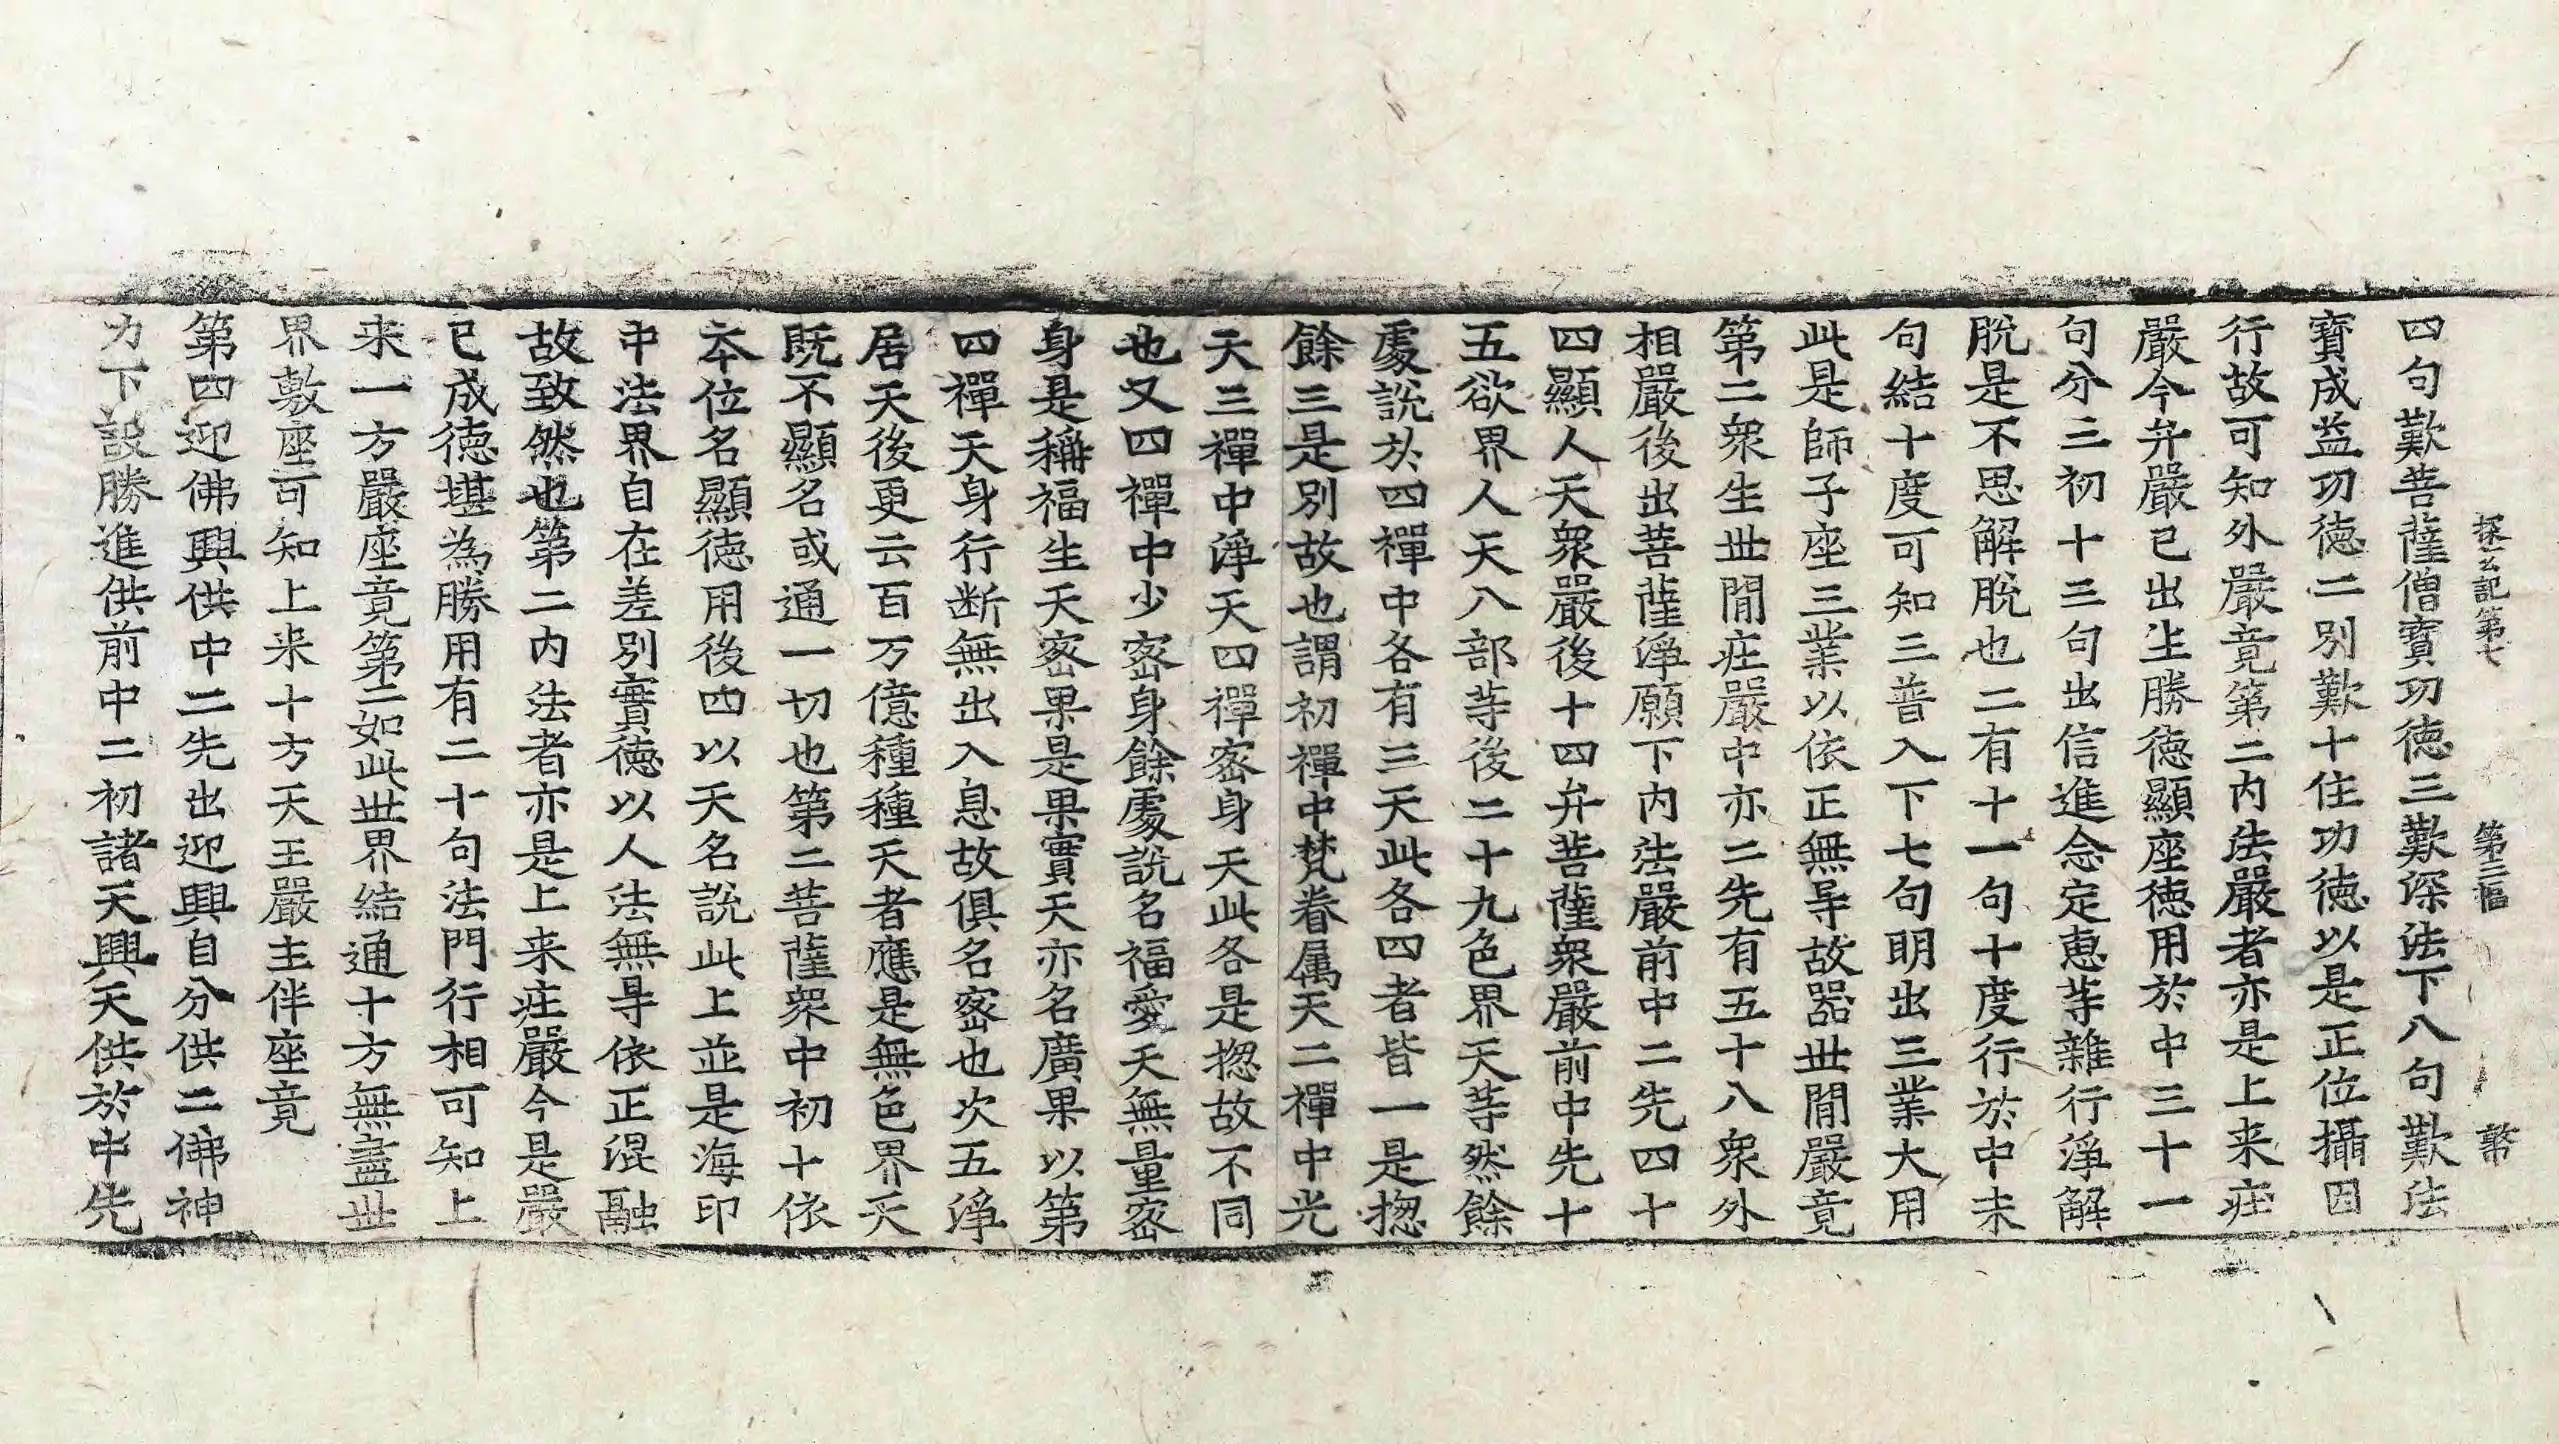 探玄記第七　第三幅　幣
四句歎菩薩僧寶功徳三歎深法下八句歎法
寶成益功徳二別歎十住功徳以是正位攝因
行故可知外嚴竟第二内法嚴者亦是上来庄
嚴今弁嚴已出生勝徳顯座徳用於中三十一
句分三初十三句出信進念定恵等雜行淨解
脱是不思解脱也二有十一句十度行於中未
句結十度可知三普入下七句明出三業大用
此是師子座三業以依正無㝵故器世間嚴竟
第二衆生世間庄嚴中亦二先有五十八衆外
相嚴後出菩薩淨願下内法嚴前中二先四十
四顯人天衆嚴後十四弁菩薩衆嚴前中先十
五欲界人天八部等後二十九色界天等然餘
處説於四禪中各有三天此各四者皆一是揔
餘三是別故也謂初禪中梵眷属天二禪中光
天三禪中淨天四禪宻身天此各是揔故不同
也又四禪中少宻身餘處説名福愛天無量宻
身是稱福生天宻果是果實天亦名廣果以第
四禪天身行断無出入息故俱名宻也次五淨
居天後更云百万億種種天者應是無色界天
既不顯名或通一切也第二菩薩衆中初十依
本位名顯徳用後四以天名説此上並是海印
中法界自在差別實徳以人法無㝵依正混融
故致然也第二内法者亦是上来庄嚴今是嚴
已成徳堪為勝用有二十句法門行相可知上
来一方嚴座竟第二如此世界結通十方無盡世
界敷座可知上来十方天王嚴主伴座竟
第四迎佛興供中二先出迎興自分供二佛神
力下設勝進供前中二初諸天興天供於中先